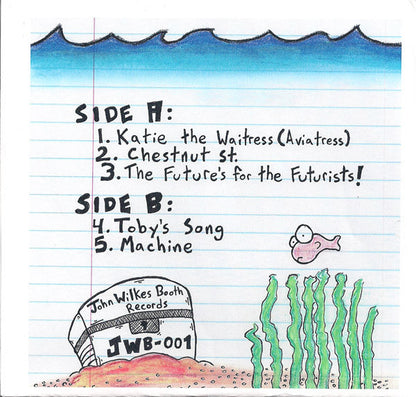 SIDE A:
1. Katie the Waitress (Aviatress)
2. Chestnut St.
3. The Future's for the Futurists!
SIDE B:
4. Toby's Song
5. Machine
John Wilkes Booth
Records
JWB-001